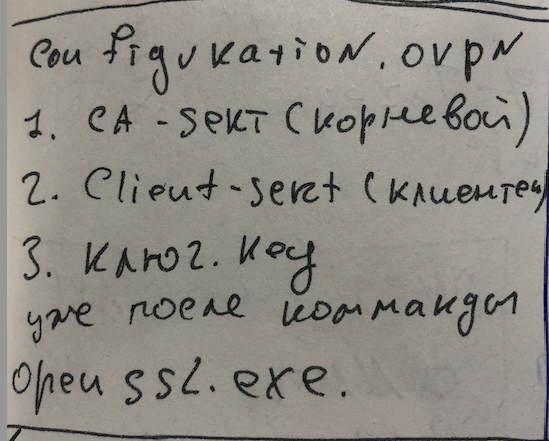 Configuration.ovpn
1. CA-sert (корневой)
2. Client-sert (клиентск
3. Ключ.key
уже после комманды
Openssl.exe.